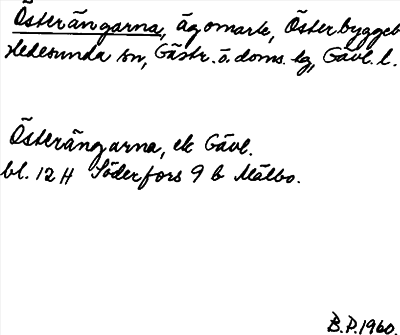 Österängarna, ägomark, Österbygget
Hedesunda sn, Gästr. ö. doms. lg, Gävl. l.
Österängarna, ek Gävl.
bl. 12 H Söderfors 9 b Mälbo.
B.P. 1960.